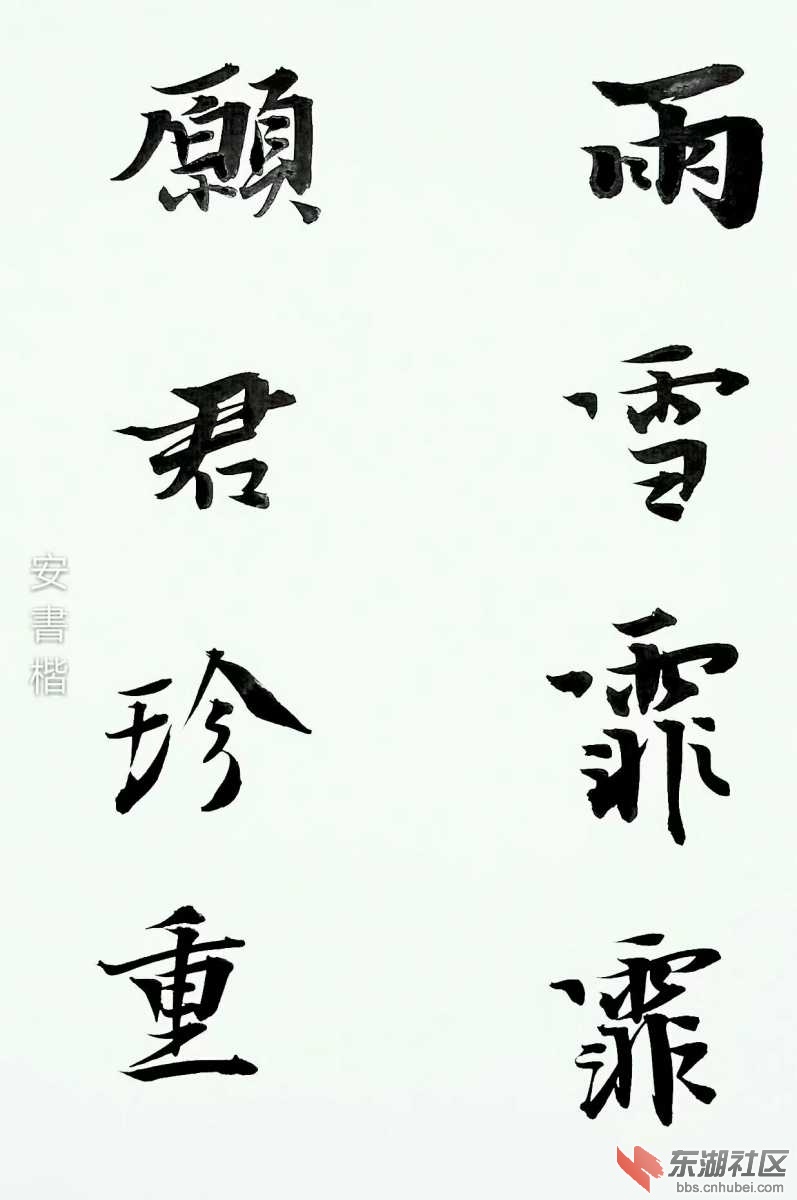 雨雪霏霏
願君珍重
安書楷
东湖社区
bbs.cnhubei.com